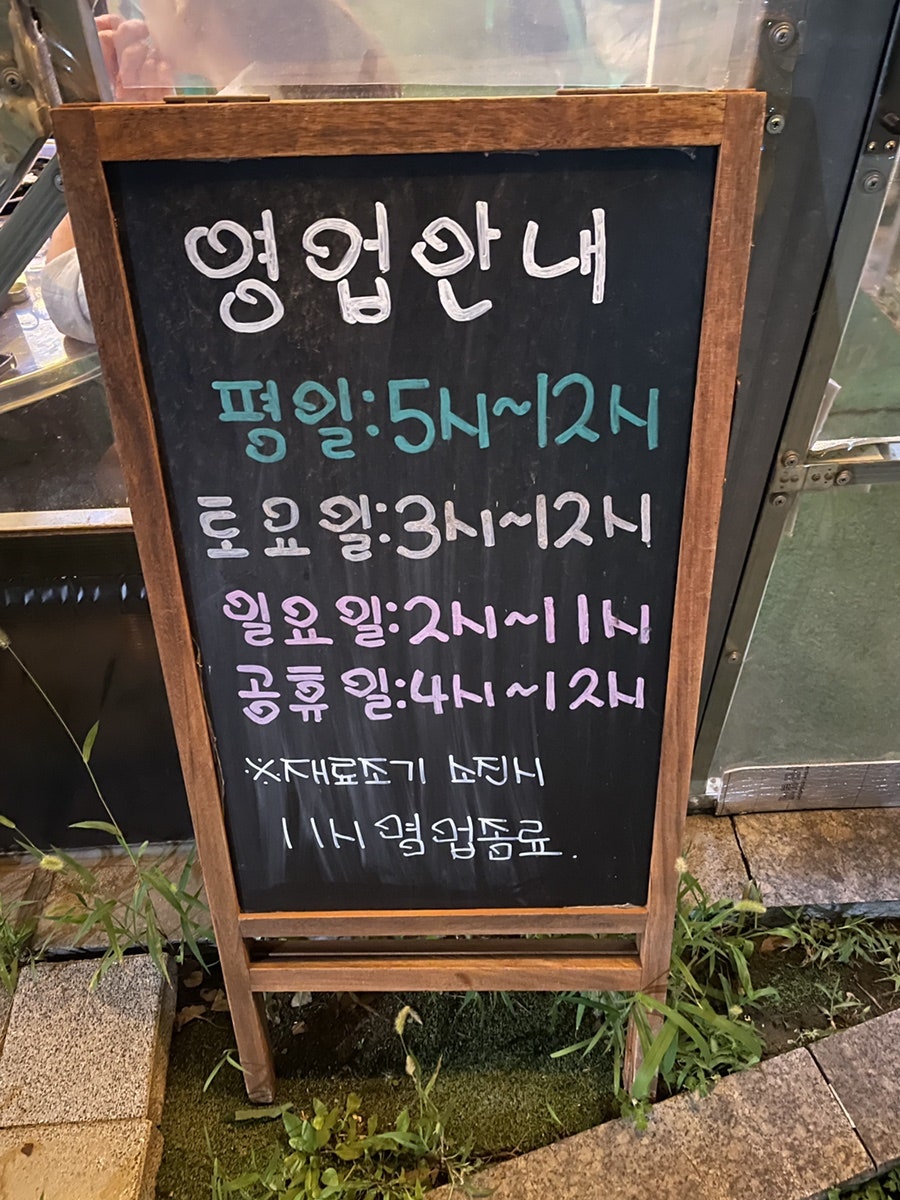 영업안내
평일:5시~12시
토요일:3시~12시
일요일:2시~11시
공휴일:4시~12시
※재료조기 소진시
11시 영업종료.